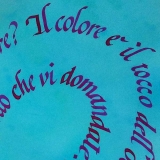 re? Il colore è il tocco dell
ao che vi domandate